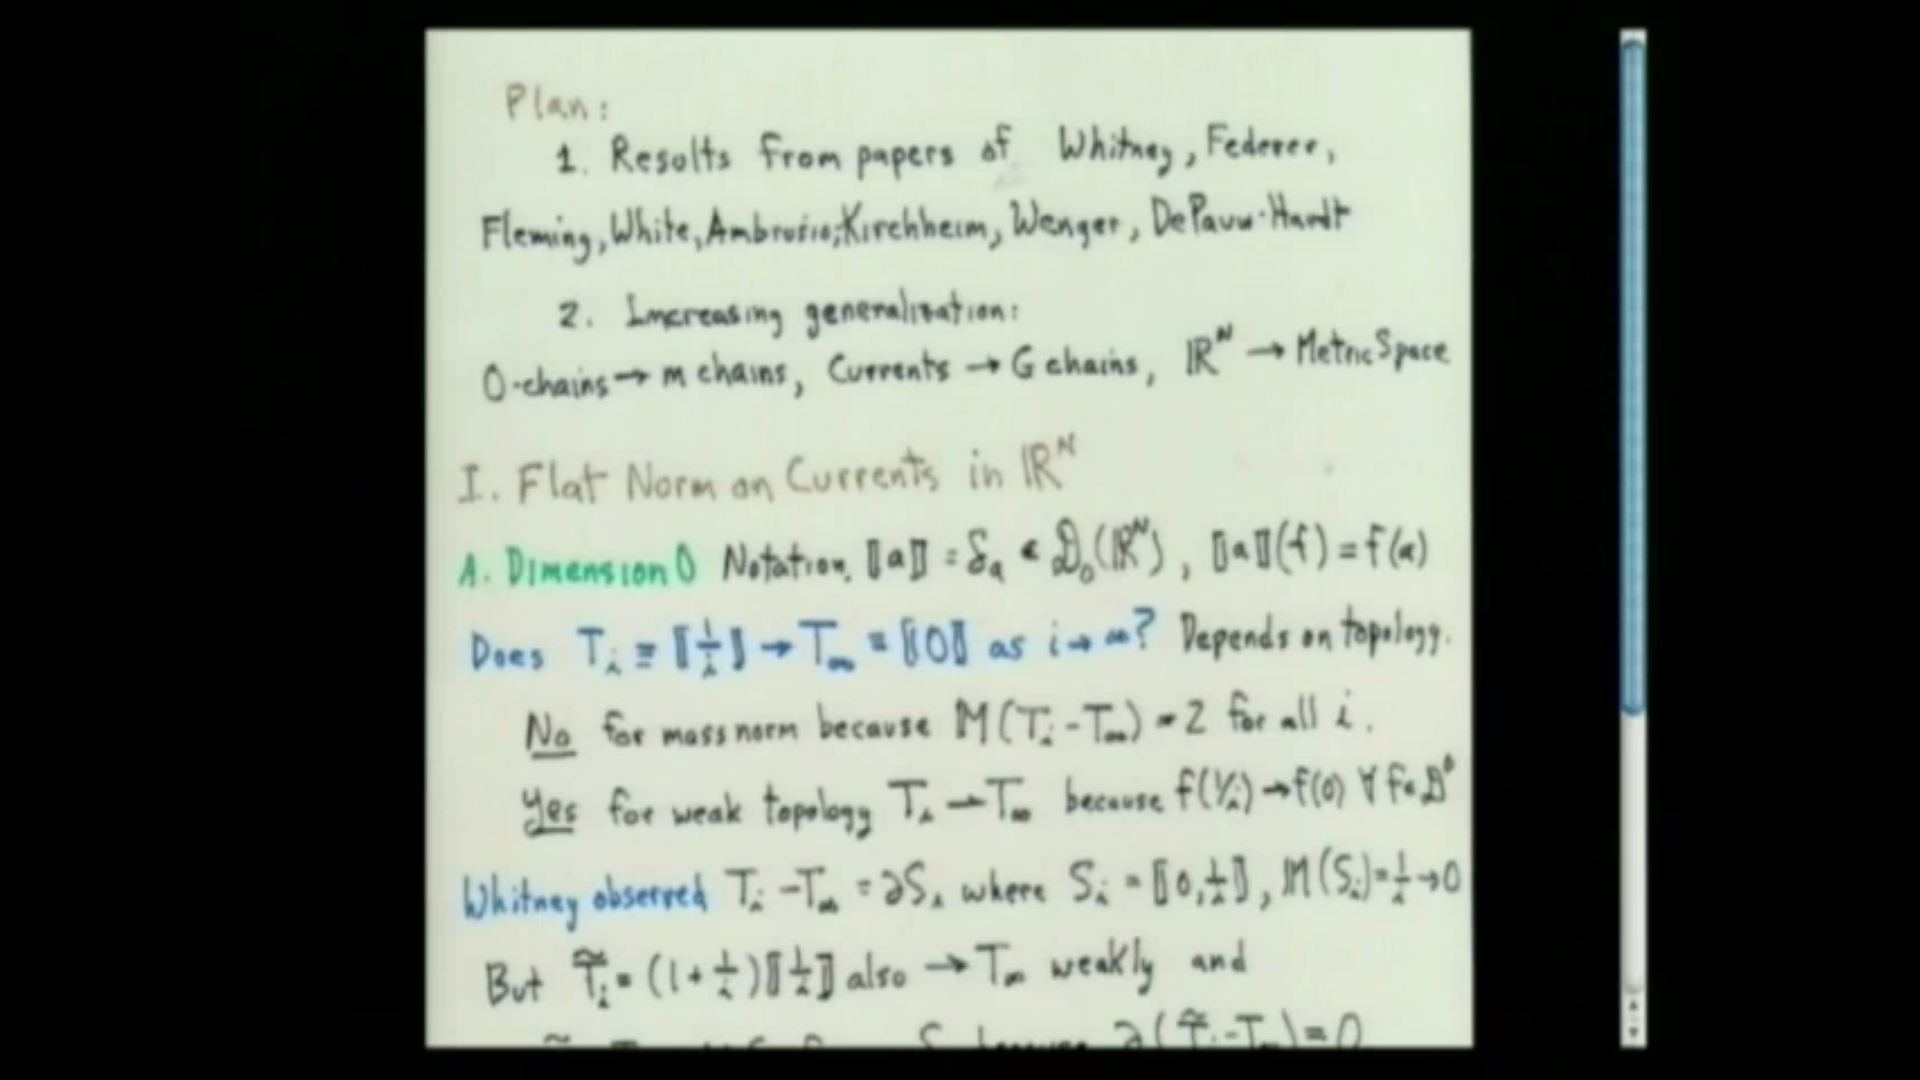 Plan:
1. Results from papers of Whitney, Federer,
Fleming, White, Ambrosio-Kirchheim, Wenger, DePauw-Hardt
2. Increasing generalization:
0-chains → m chains, Currents → G chains, ℝᴺ → Metric Space
I. Flat Norm on Currents in ℝᴺ
A. Dimension 0 Notation. ⟦a⟧ = δₐ ∈ 𝒟₀(ℝᴺ), ⟦a⟧(f) = f(a)
Does Tᵢ ≡ ⟦1/i⟧ → T∞ = ⟦0⟧ as i → ∞? Depends on topology.
No for mass norm because 𝕄(Tᵢ - T∞) = 2 for all i.
Yes for weak topology Tᵢ ⇀ T∞ because f(1/i) → f(0) ∀ f ∈ 𝒟⁰
Whitney observed Tᵢ - T∞ = ∂Sᵢ where Sᵢ = ⟦0, 1/i⟧, 𝕄(Sᵢ) = 1/i → 0
But T̃ᵢ = (1 + 1/i)⟦1/i⟧ also → T∞ weakly and
∂(T̃ᵢ - T∞) = 0